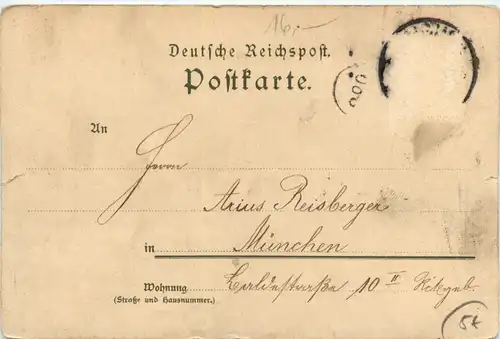 16,-
Deutsche Reichspost.
Postkarte.
An
Herrn
Reisberger
in München
Wohnung 10 II
(Straße und Hausnummer.)
5€